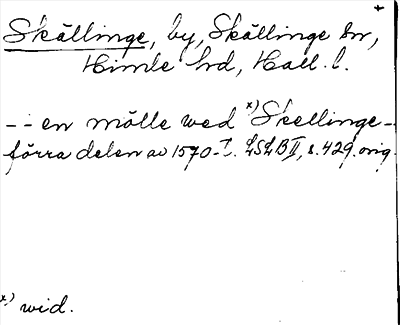 +
Skällinge, by, Skällinge sn,
Himle hd, Hall. l.
--- en mölle wed x) Skellinge --
förra delen av 1570-t. LSLB II, s. 429. orig.
x) wid.